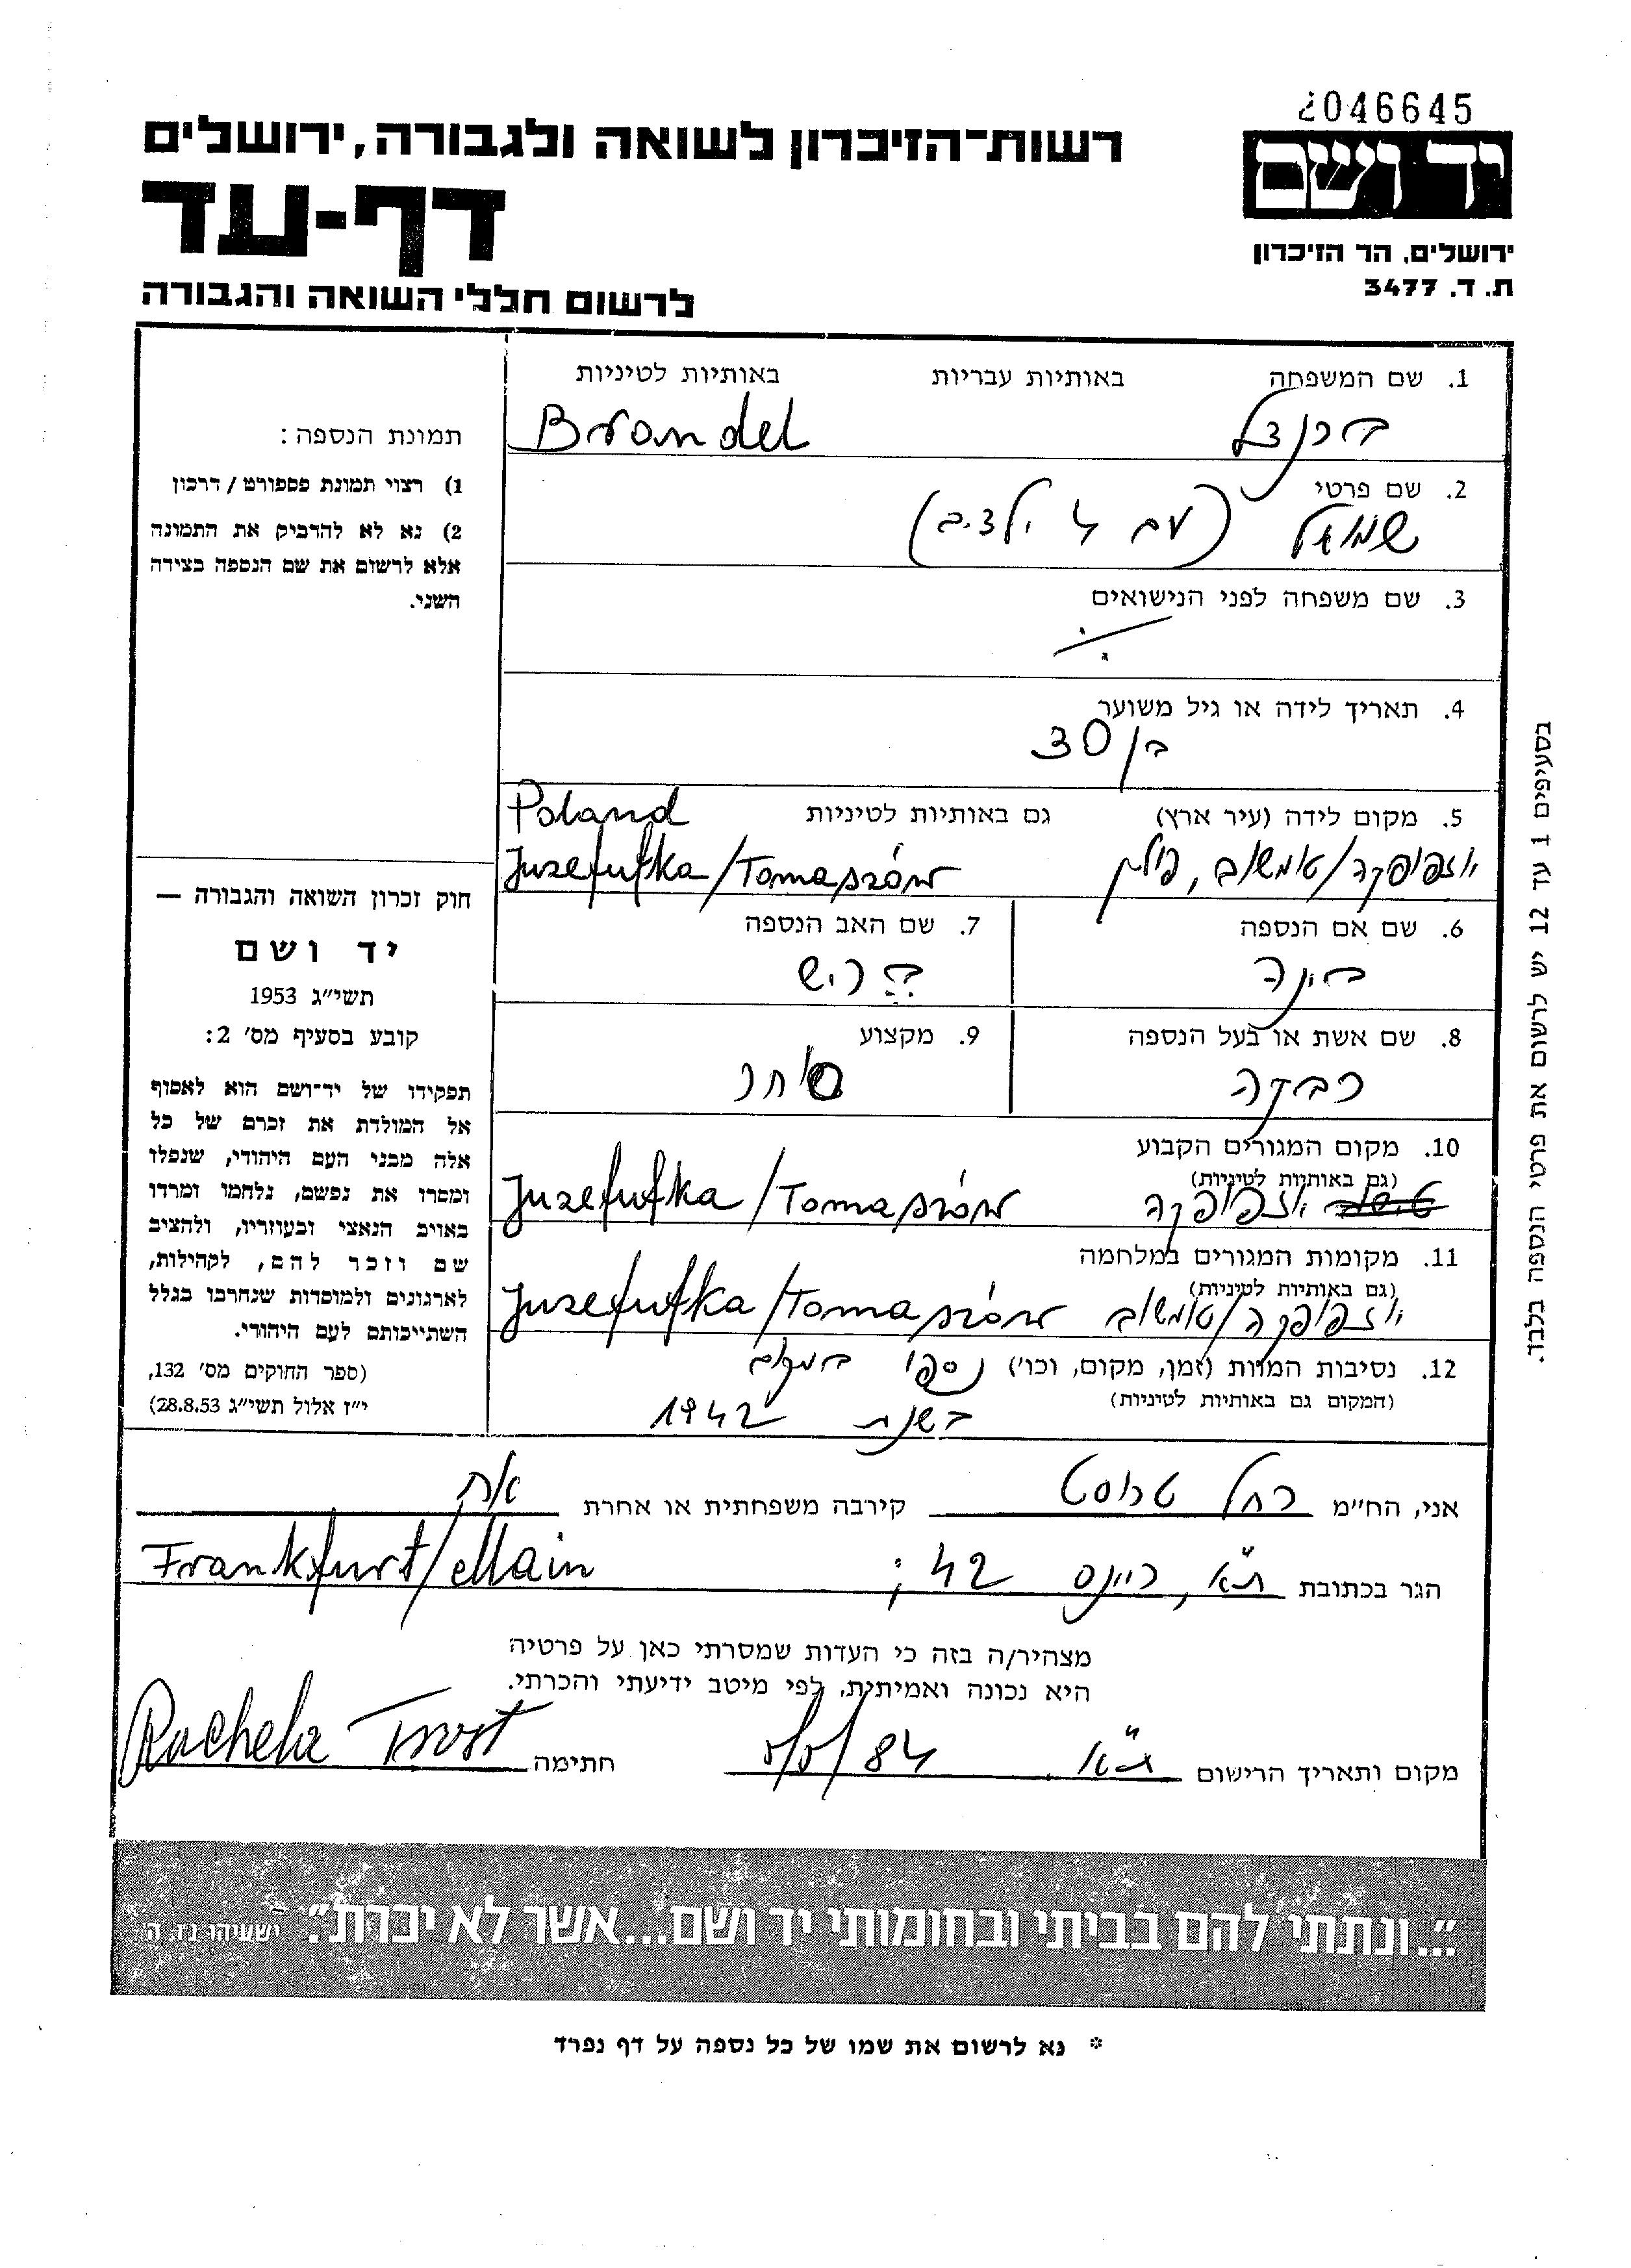 2046645
יד ושם
ירושלים, הר הזיכרון
ת. ד. 3477
רשות־הזיכרון לשואה ולגבורה, ירושלים
דף-עד
לרשום חללי השואה והגבורה
1. שם המשפחה באותיות עבריות באותיות לטיניות
ברנדל Brandel
2. שם פרטי
שמואל (עם 4 ילדים)
3. שם משפחה לפני הנישואים
4. תאריך לידה או גיל משוער
בן 30
5. מקום לידה (עיר ארץ) גם באותיות לטיניות Poland
יוזפופקה/טומשוב, פולין Juzefufka/Tomaszów
6. שם אם הנספה 7. שם האב הנספה
בינה בריש
8. שם אשת או בעל הנספה 9. מקצוע
רבקה סוחר
10. מקום המגורים הקבוע
(גם באותיות לטיניות)
יוזפופקה Juzefufka/Tomaszów
11. מקומות המגורים במלחמה
(גם באותיות לטיניות)
יוזפופקה/טומשוב Juzefufka/Tomaszów
12. נסיבות המוות (זמן, מקום, וכו') נספו במקום
(המקום גם באותיות לטיניות)
בשנת 1942
תמונת הנספה:
1) רצוי תמונת פספורט/דרכון
2) נא לא להדביק את התמונה
אלא לרשום את שם הנספה בצידה
השני.
חוק זכרון השואה והגבורה —
יד ושם
תשי"ג 1953
קובע בסעיף מס' 2:
תפקידו של יד־ושם הוא לאסוף
אל המולדת את זכרם של כל
אלה מבני העם היהודי, שנפלו
ומסרו את נפשם, נלחמו ומרדו
באויב הנאצי ובעוזריו, ולהציב
שם וזכר להם, לקהילות,
לארגונים ולמוסדות שנחרבו בגלל
השתייכותם לעם היהודי.
(ספר החוקים מס' 132,
י"ז אלול תשי"ג 28.8.53)
בסעיפים 1 עד 12 יש לרשום את פרטי הנספה בלבד.
אני, הח"מ רחל טרוסט קירבה משפחתית או אחרת אחות
הגר בכתובת ת"א, ריינס 42; Frankfurt/Main
מצהיר/ה בזה כי העדות שמסרתי כאן על פרטיה
היא נכונה ואמיתית, לפי מיטב ידיעתי והכרתי.
מקום ותאריך הרישום ת"א 84 חתימה Rachela Trost
"...ונתתי להם בביתי ובחומותי יד ושם...אשר לא יכרת". ישעיהו נו, ה
* נא לרשום את שמו של כל נספה על דף נפרד